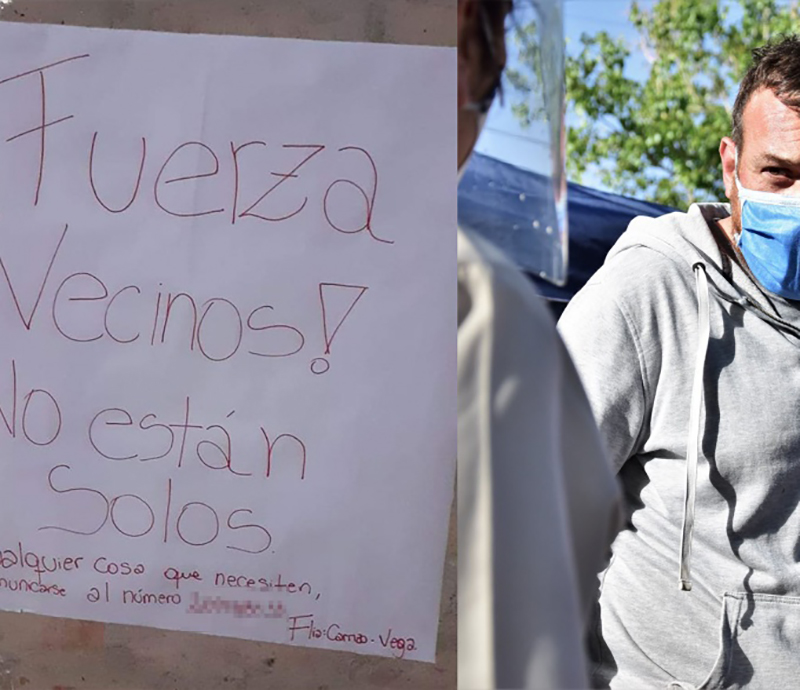 Fuerza
Vecinos!
No están
Solos.
alquier cosa que necesiten,
municarse al número
Flia: Camao - Vega.